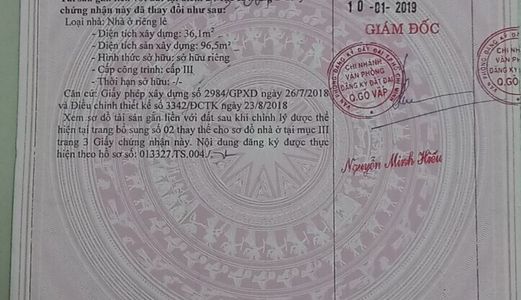 chứng nhận này đã thay đổi như sau:
Loại nhà: Nhà ở riêng lẻ
- Diện tích xây dựng: 36,1m²
- Diện tích sàn xây dựng: 96,5m²
- Hình thức sở hữu: sở hữu riêng
- Cấp công trình: cấp III
- Thời hạn sở hữu: -/-
Căn cứ: Giấy phép xây dựng số 2984/GPXD ngày 26/7/2018
và Điều chỉnh thiết kế số 3342/ĐCTK ngày 23/8/2018
Xem sơ đồ tài sản gắn liền với đất sau khi chỉnh lý được thể
hiện tại trang bổ sung số 02 thay thế cho sơ đồ nhà ở tại mục III
trang 3 Giấy chứng nhận này. Nội dung đăng ký được thực
hiện theo hồ sơ số: 013327.TS.004./.
10 -01- 2019
GIÁM ĐỐC
CHI NHÁNH
VĂN PHÒNG
ĐĂNG KÝ ĐẤT ĐAI
Q.GÒ VẤP
Nguyễn Minh Hiếu
CHI NHÁNH
VĂN PHÒNG
ĐĂNG KÝ ĐẤT
Q.GÒ VẤP